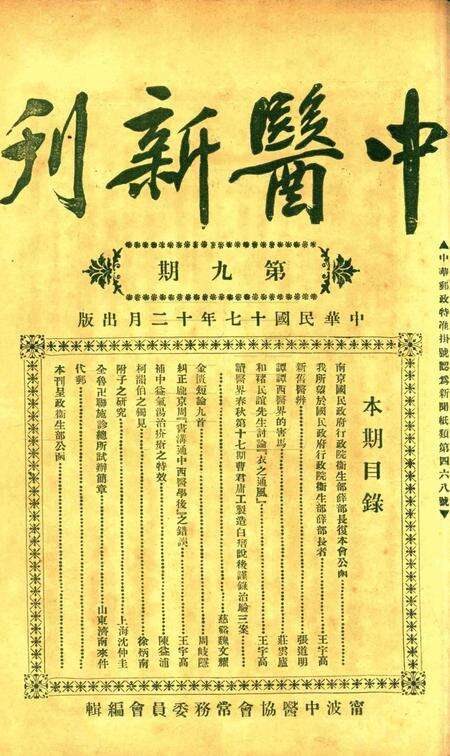 中醫新刊
第九期
中華民國十七年十二月出版
▲中華郵政特准掛號認爲新聞紙類第四六八號▼
本期目錄
南京國民政府行政院衛生部薛部長復本會公函
我所望於國民政府行政院衛生部薛部長者 王宇高
新舊醫辨 張道明
譚譚西醫界的害馬 莊雲廬
和褚民誼先生討論『衣之通風』 王宇高
讀醫界春秋第十七期曹君庸工製造白㾦說後謹錄治驗三案 慈谿魏文耀
金匱短論九首 周岐隱
糾正龐京周一書溝通中西醫學後『之錯誤 王宇高
補中益氣湯治瘧瘠之特效 陳益浦
柯瀋伯之鴿見 徐炳南
附子之研究 上海沈仲圭
全魯卍聯施診總所試辦簡章 山東濟南來件
代郵
本刊呈政衛生部公函
甯波中醫協會常務委員會編輯